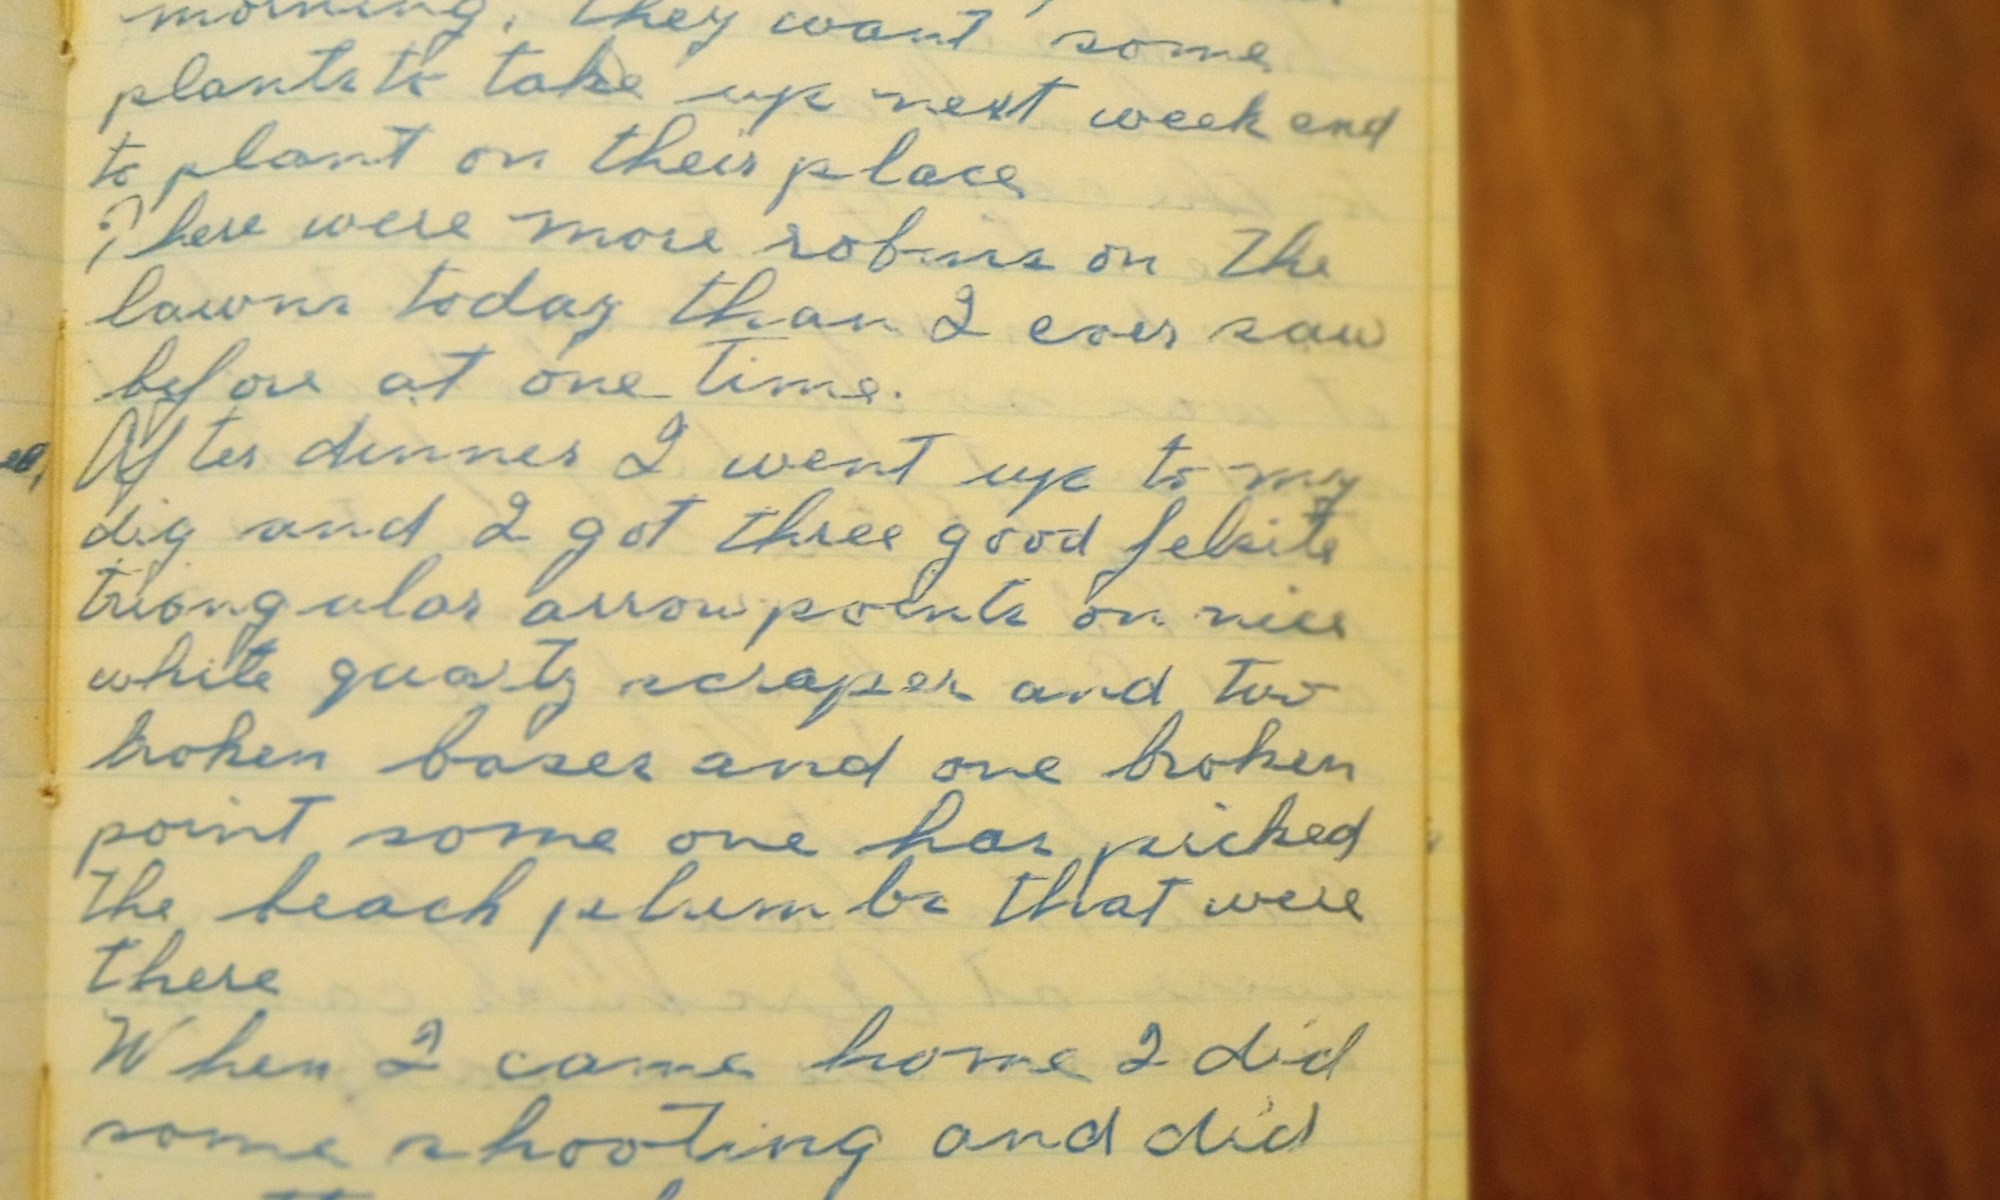 morning, they want some
plants to take up next week end
to plant on their place
There were more robins on the
lawns today than I ever saw
before at one time.
After dinner I went up to my
dig and I got three good felsite
triangular arrow points on nice
white quartz scraper and two
broken bases and one broken
point some one has picked
the beach plumbs that were
there
When I came home I did
some shooting and did